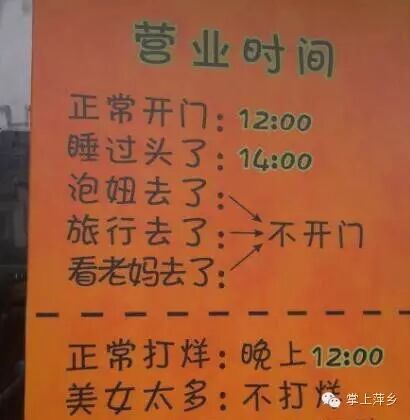 营业时间
正常开门：12:00
睡过头了：14:00
泡妞去了：
旅行去了：不开门
看老妈去了：
正常打烊：晚上12:00
美女太多：不打烊
掌上萍乡